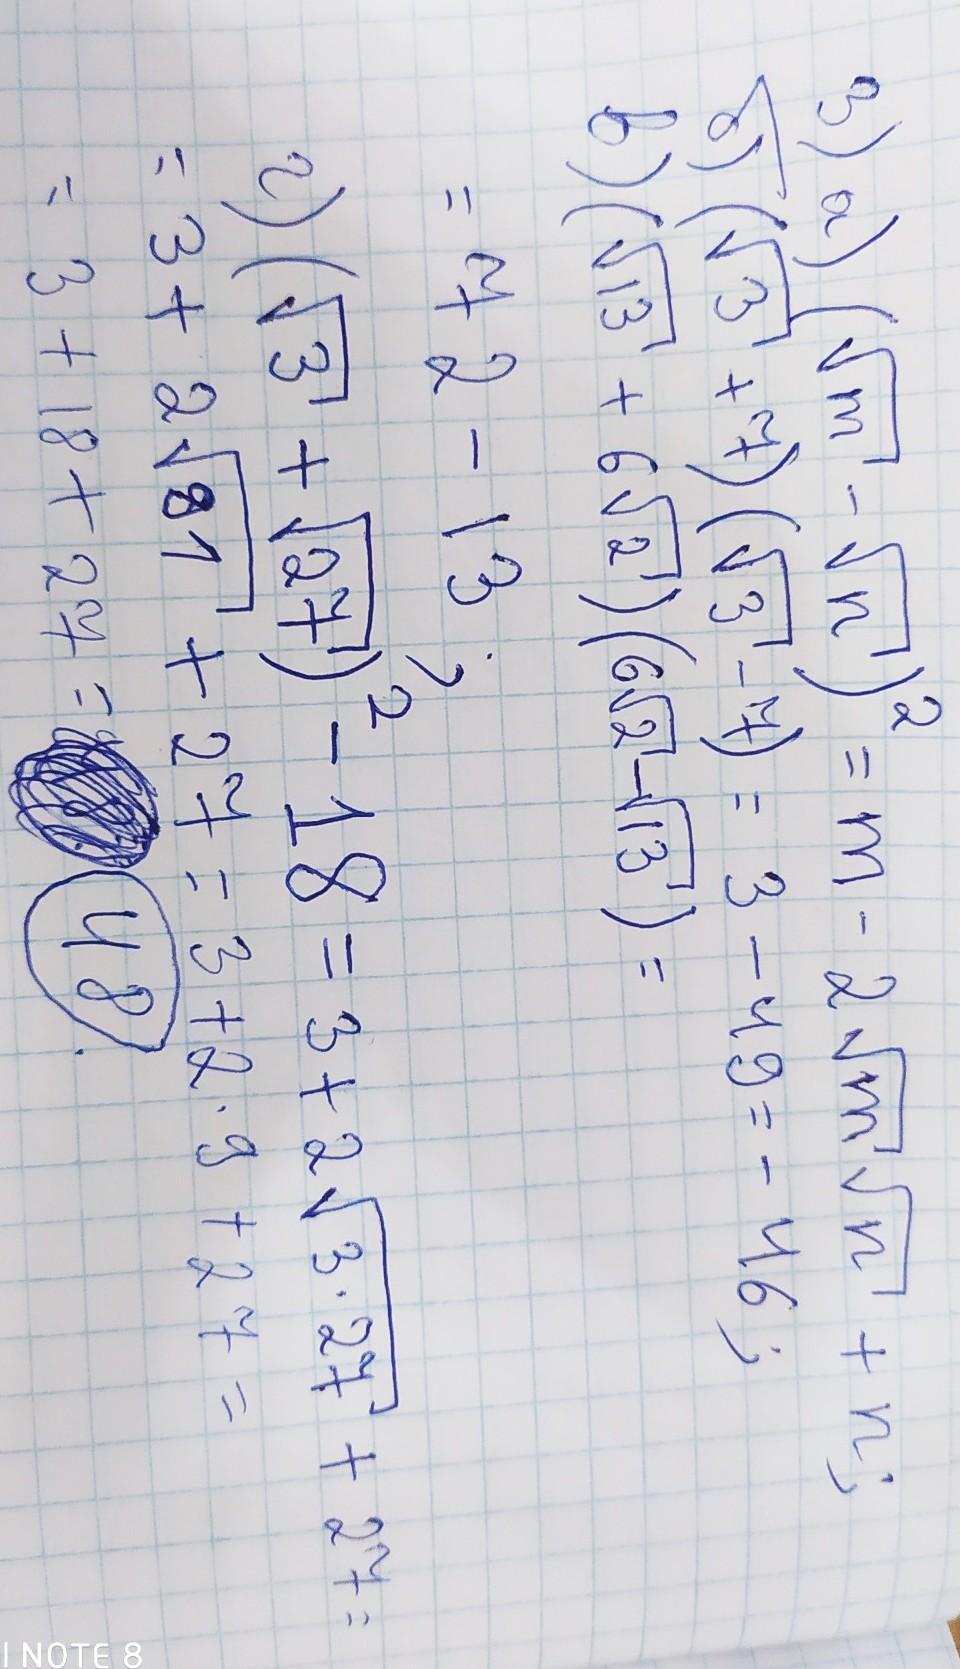 3) а) (√m - √n)² = m - 2√m√n + n;
б) (√3 + 7)(√3 - 7) = 3 - 49 = - 46;
в) (√13 + 6√2)(6√2 - √13) =
= 72 - 13;
г) (√3 + √27)² - 18 = 3 + 2√3·27 + 27 =
= 3 + 2√81 + 27 = 3 + 2·9 + 27 =
= 3 + 18 + 27 = 48.
I NOTE 8